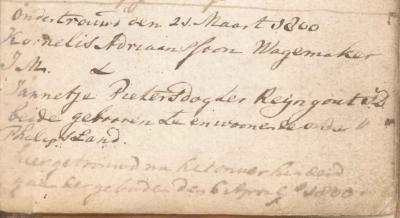 Ondertrouwd den 21 Maart 1800
Kornelis Adriaansssoon Wagemaker
J M. &
Jannetje Pietersdogter Reijngout JD
beide gebooren & woonende onder
Philips Land.
hier getrouwd na
geboden den 6 April 1800